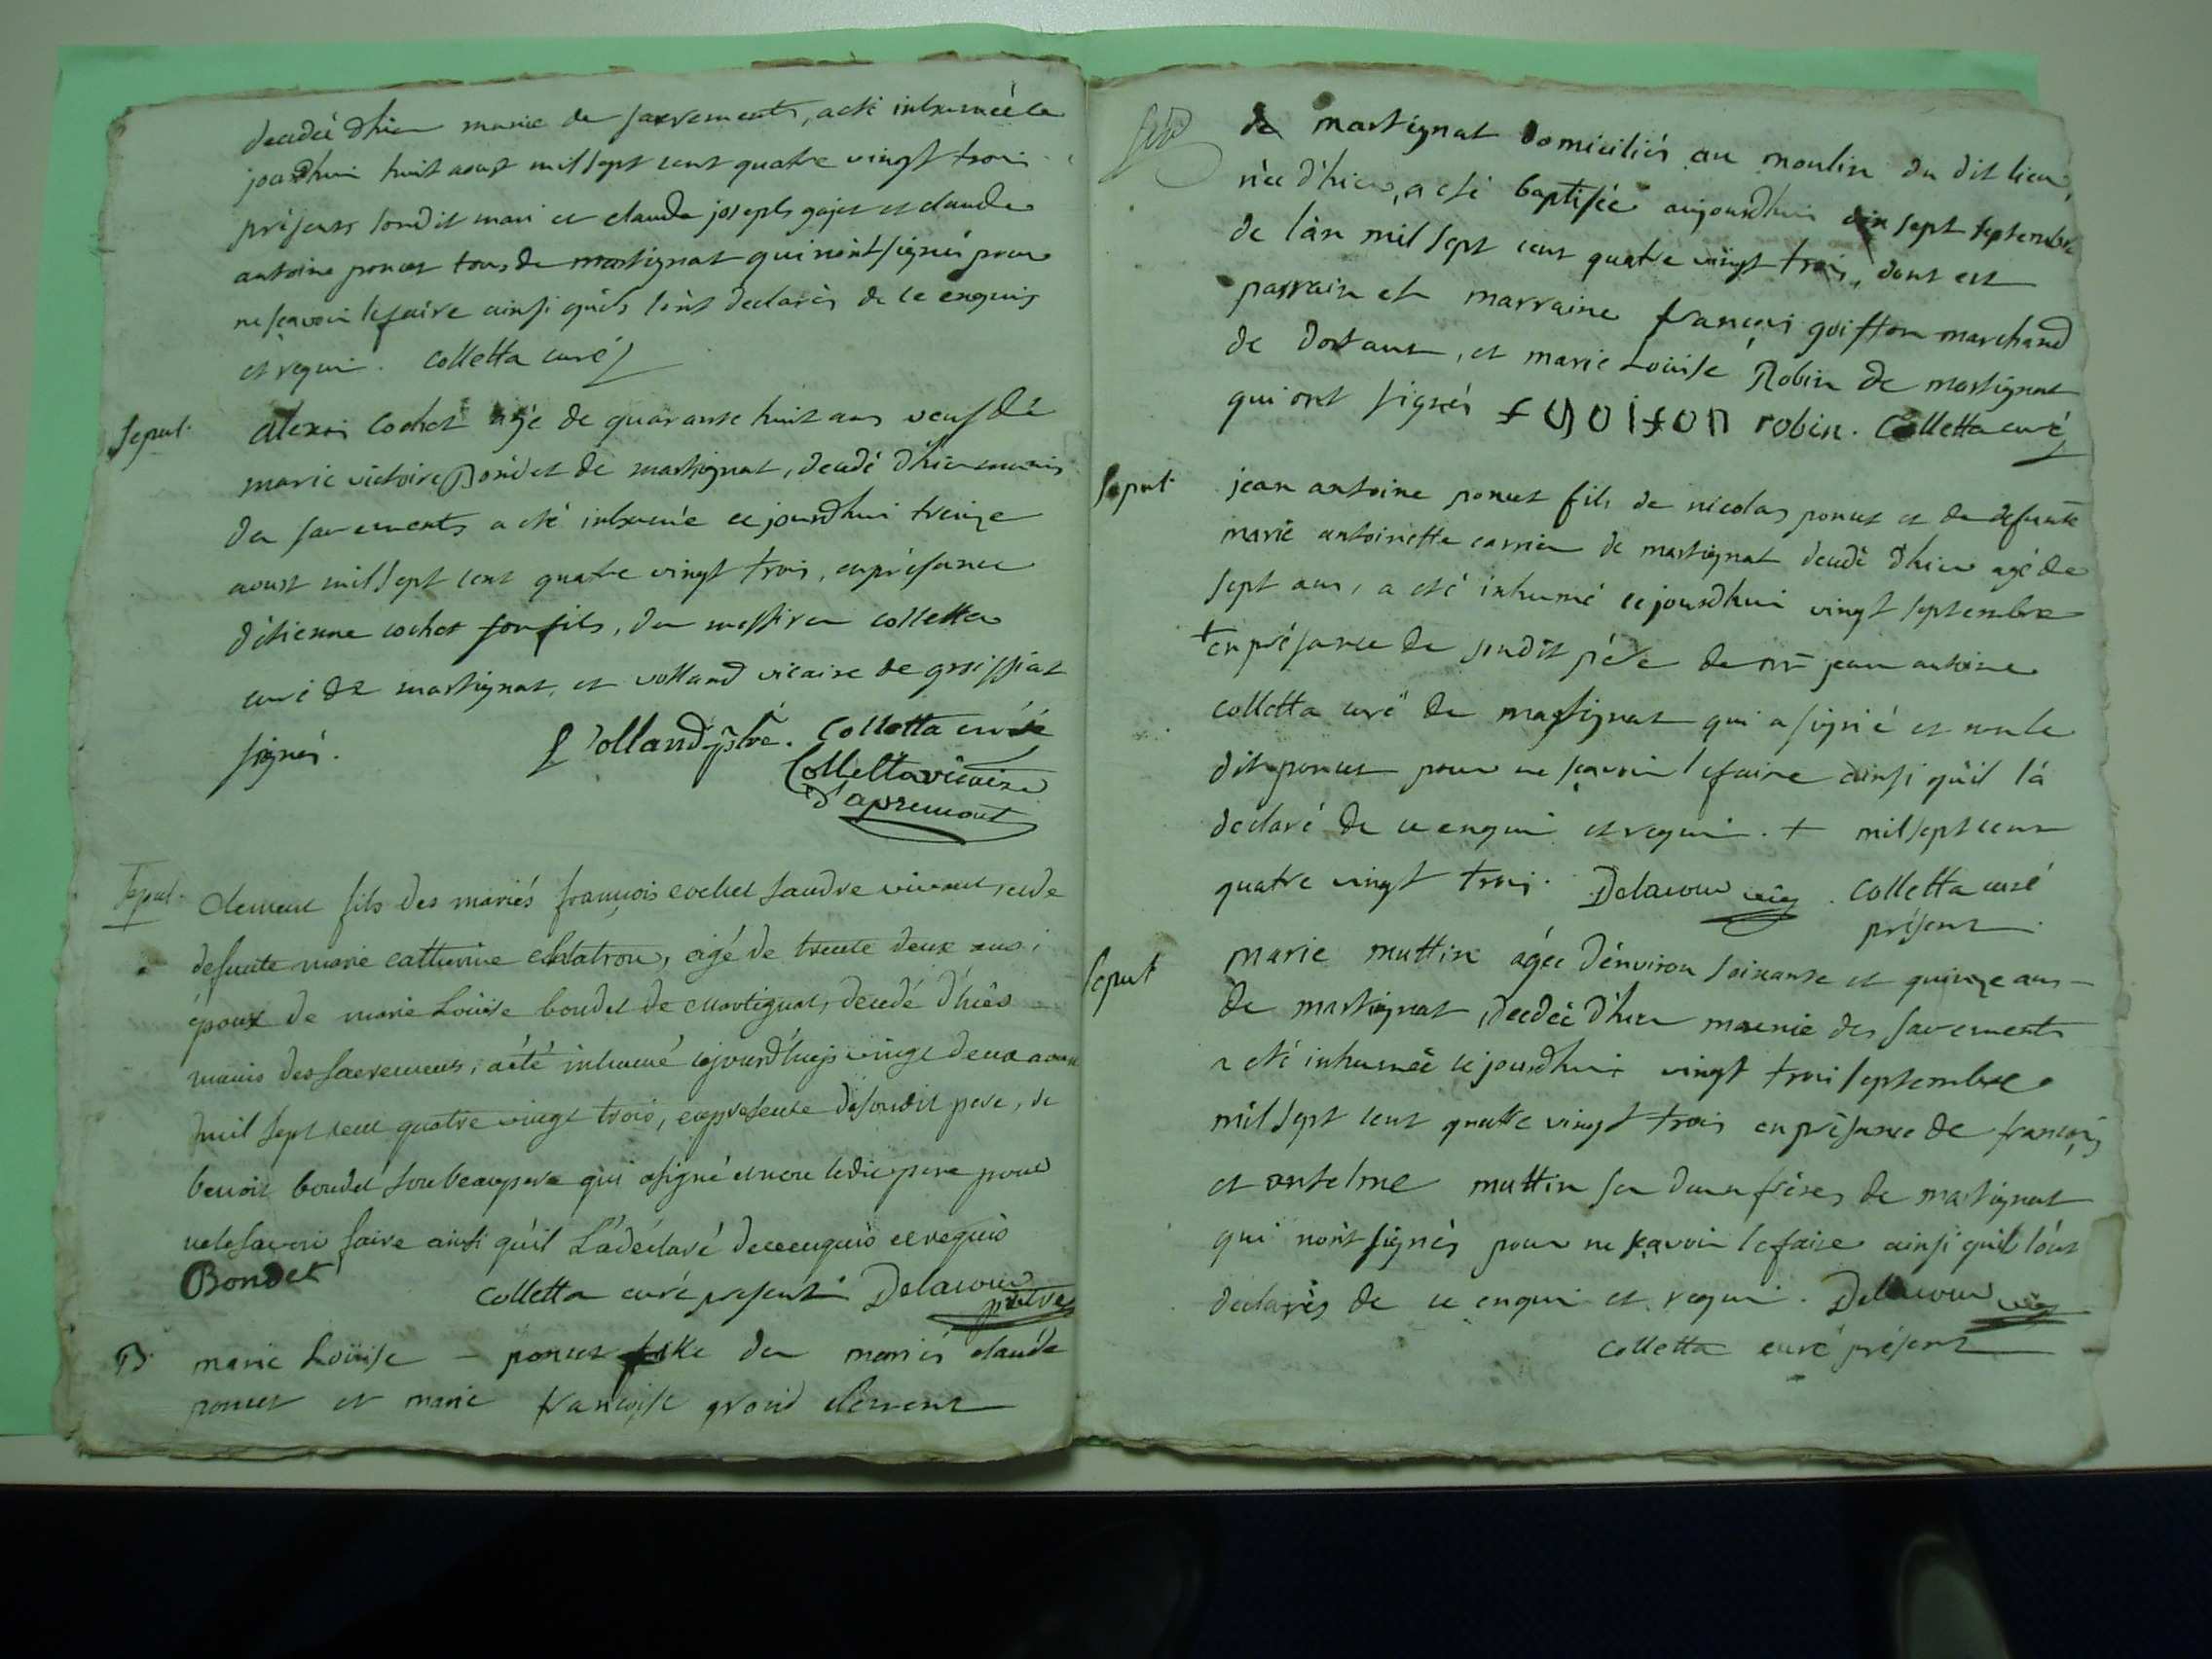 decedée d'hier munie des sacrements, a eté inhumée ce
jourdhui huit aoust mil sept cent quatre vingt trois
présents sondit mari et claude joseph gojet et claude
antoine poncet tous de martignat qui n'ont signés pour
ne sçavoir le faire ainsi qu'ils l'ont declarés de ce enquis
et requi. Colletta curé
Seput. Alexis Cochet agé de quarante huit ans veuf de
marie victoire Bondet de martignat, decedé d'hier munis
des sacrements a eté inhumé ce jourdhui treize
aoust mil sept cent quatre vingt trois, en présance
d'étienne cochet son fils, des messires colletta
curé de martignat, et volland vicaire de groissiat
signés. Volland ptre. Colletta curé
Colletta vicaire
d'apremont
Seput. Clement fils des mariés françois cochet Landre vivant, et de
defunte marie catherine Chatron, agé de trente deux ans,
époux de marie Loüise bondet de martignat, decedé d'hiér
munis des sacremens, a été inhumé cejourd'huy vingt deux aoust
mil sept cent quatre vingt trois, en presence de sondit pere, de
benoit bondet son beaupere qui a signé et non ledit pere pour
ne le savoir faire ainsi qu'il L'a déclaré de ce enquis et requis
Bondet
Colletta curé present Delacour
prêtre
B. marie Loüise poncet fille des mariés claude
poncet et marie françoise grand clement
de martignat domiciliés au moulin du dit lieu,
née d'hier, a eté baptisée aujourdhui dix sept septembre
de l'an mil sept cent quatre vingt trois, dont est
parrain et marraine françois goiffon marchand
de dortant, et marie Loüise Robin de martignat
qui ont signés f goifon robin. Colletta curé
Seput. jean antoine poncet fils de nicolas poncet et de defunte
marie antoinette carrier de martignat decedé d'hier agé de
sept ans, a eté inhumé ce jourdhui vingt septembre
+ en présance de sondit pére de mre jean antoine
colletta curé de martignat qui a signé et non le
dit poncet pour ne sçavoir le faire ainsi qu'il l'a
declaré de ce enqui et requi. + mil sept cent
quatre vingt trois. Delacour vic. Colletta curé
présent.
Seput marie muttin agée d'environ soixante et quinze ans
de martignat, decedée d'hier munie des sacrements
a eté inhumée ce jourdhui vingt trois septembre
mil sept cent quatre vingt trois en présance de françois
et antelme muttin ses deux fréres de martignat
qui n'ont signés pour ne sçavoir le faire ainsi qu'il l'ont
declarés de ce enqui et requi. Delacour vic
Colletta curé présent